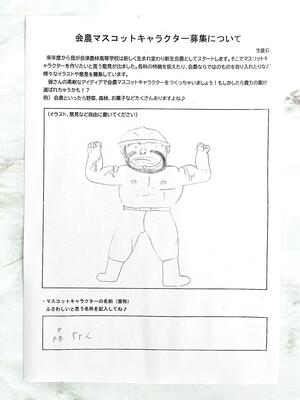 会農マスコットキャラクター募集について
生徒会
来年度から我が会津農林高等学校は新しく生まれ変わり新生会農としてスタートします。そこでマスコットキ
ャラクターを作りたいと言う意見が出ました。各科の特徴を捉えたり、会農ならではのものを取り入れたりなど
様々なイラストや意見を募集しています。
皆さんの柔軟なアイディアで会農マスコットキャラクターをつくっちゃいましょう！もしかしたら貴方の案が
選ばれちゃうかも！？
例）会農といったら野菜、森林、お菓子などたくさんありますよね♪
（イラスト、意見など自由に書いてください）
・マスコットキャラクターの名前（愛称）
ふさわしいと思う名称を記入してね♪
森ちゃん